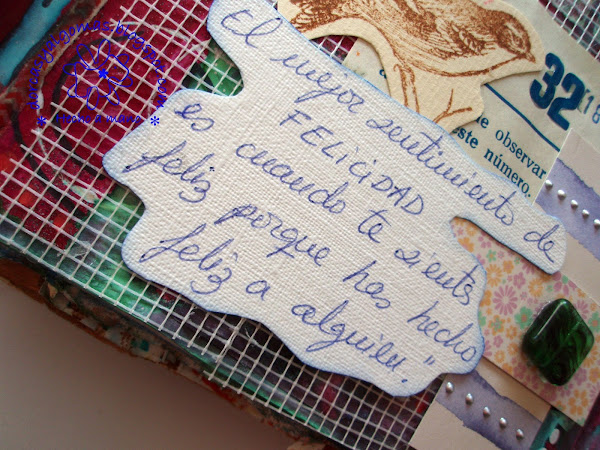 El mejor sentimiento de
FELICIDAD
es cuando te sientes
feliz porque has hecho
feliz a alguien."
32
e observar
este número.